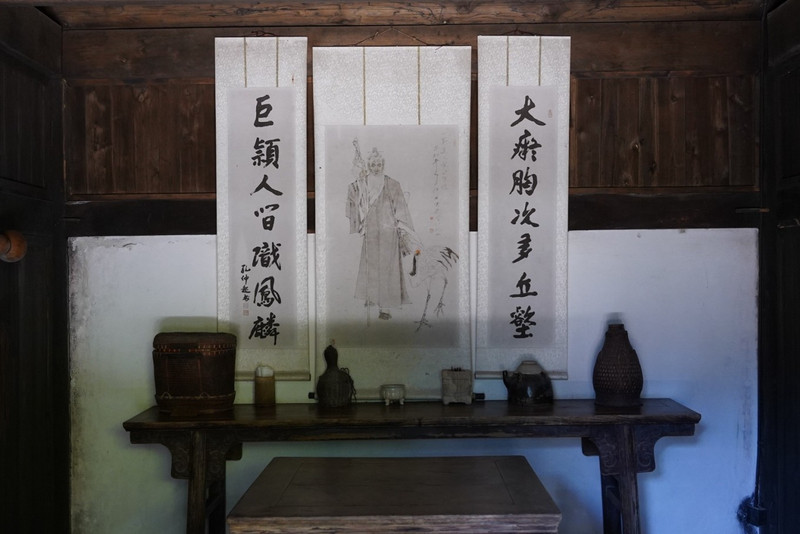 大癡胸次多丘壑
巨穎人間識鳳麟
孔仲起书